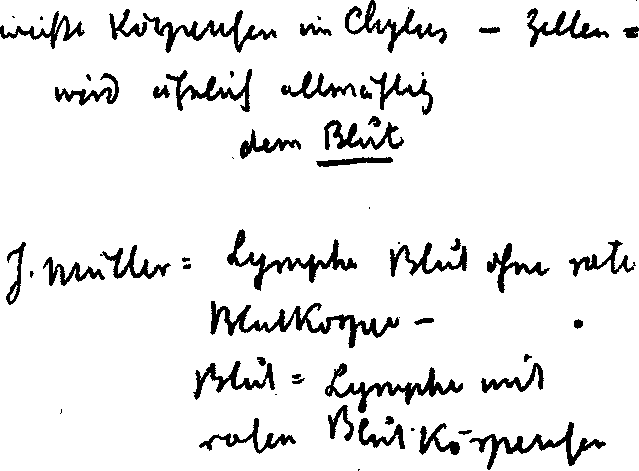 weiße Körperchen im Chylus – Zellen =
wird ähnlich allmählig
dem Blut
J. Müller = Lymphe Blut ohne rote
Blutkörper –
Blut = Lymphe mit
roten Blut-Körperchen